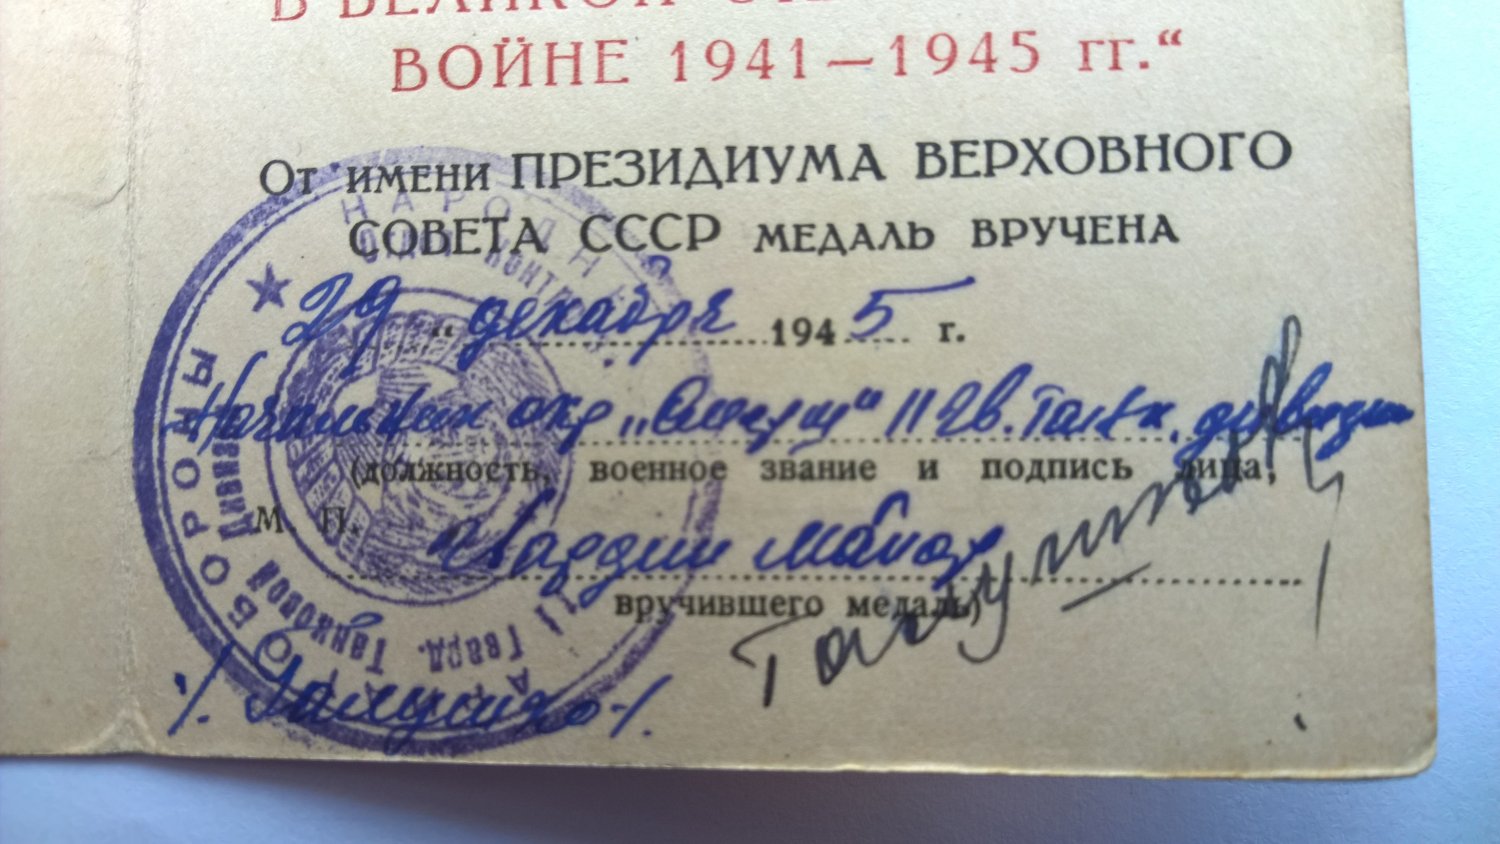 В ВЕЛИКОЙ
ВОЙНЕ 1941—1945 гг.“
От имени ПРЕЗИДИУМА ВЕРХОВНОГО
СОВЕТА СССР МЕДАЛЬ ВРУЧЕНА
29 „ декабря 1945 г.
Начальник окр „Смерш“ 11 гв. Танк. дивизии
(должность, военное звание и подпись лица,
М. П. гвардии майор
вручившего медаль)
/. Галушко /.
НАРОДН
ОБОРОНЫ
11 Гвард. Танковой Дивизии